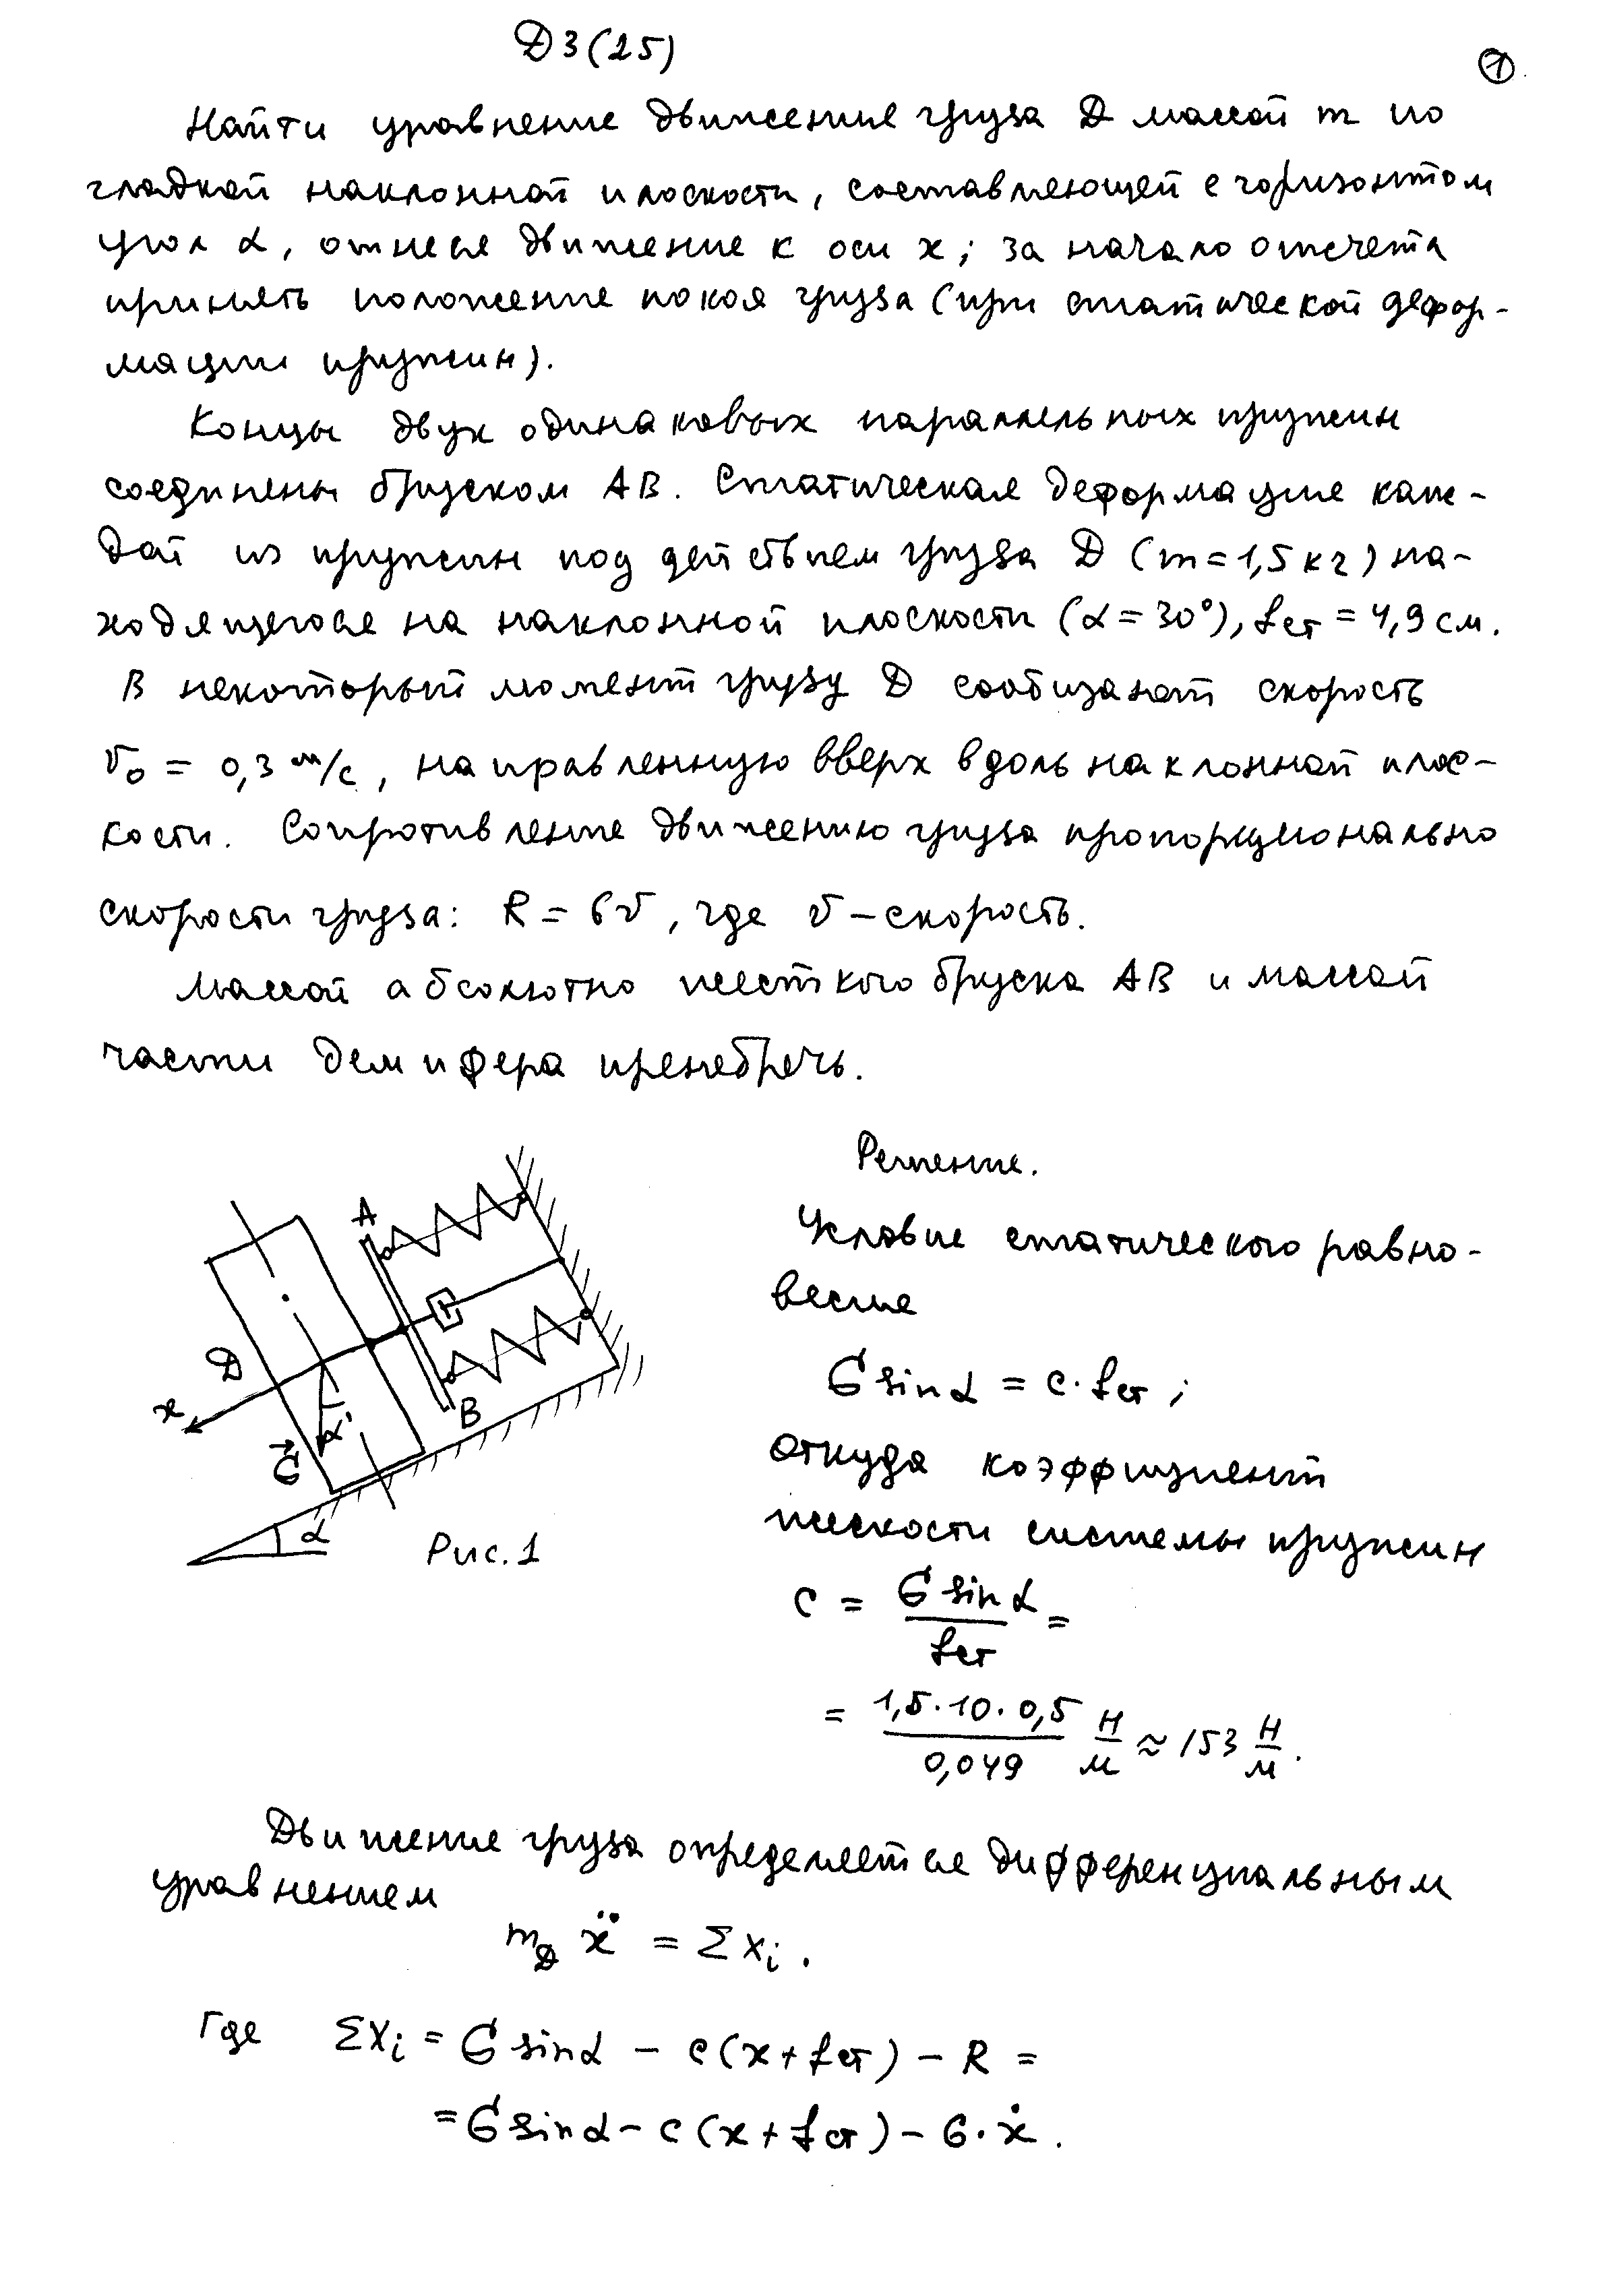 D3(25)
1
Найти уравнение движения груза D массой m по
гладкой наклонной плоскости, составляющей с горизонтом
угол α, отнеся движение к оси x; за начало отсчета
принять положение покоя груза (при статической дефор-
мации пружин).
Концы двух одинаковых параллельных пружин
соединены бруском AB. Статическая деформация каж-
дой из пружин под действием груза D (m = 1,5 кг) на-
ходящегося на наклонной плоскости (α = 30°), fст = 4,9 см.
В некоторый момент грузу D сообщают скорость
v₀ = 0,3 м/с, направленную вверх вдоль наклонной плос-
кости. Сопротивление движению груза пропорционально
скорости груза: R = 6v, где v – скорость.
Массой абсолютно жесткого бруска AB и массой
части демпфера пренебречь.
Решение.
Условие статического равно-
весия
G sin α = c · fст ;
откуда коэффициент
жескости системы пружин
c = G sin α / fст =
= 1,5 · 10 · 0,5 / 0,049 Н/м ≈ 153 Н/м .
A
D
x
B
G
α
α
Рис. 1
Движение груза определяется дифференциальным
уравнением
m_D ẍ = Σ Xi .
Где ΣXi = G sin α – c (x + fст) – R =
= G sin α – c (x + fст) – 6 · ẋ .